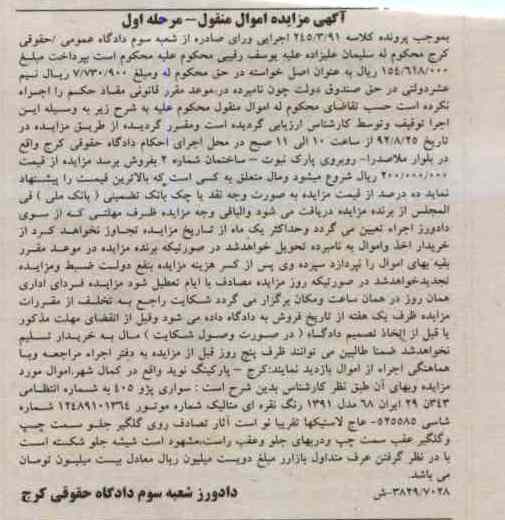 آگهی مزایده اموال منقول – مرحله اول
بموجب پرونده کلاسه ۲۴۵/۳/۹۱ اجرایی ورای صادره از شعبه سوم دادگاه عمومی /حقوقی
کرج محکوم له سلیمان علیزاده علیه یوسف رقیبی محکوم علیه محکوم است بپرداخت مبلغ
۱۵۴/۶۱۸/۰۰۰ ریال به عنوان اصل خواسته در حق محکوم له ومبلغ ۷/۷۳۰/۹۰۰ ریال نیم
عشردولتی در حق صندوق دولت چون نامبرده در موعد مقرر قانونی مفاد حکم را اجراء
نکرده است حسب تقاضای محکوم له اموال منقول محکوم علیه به شرح زیر به وسیله این
اجرا توقیف وتوسط کارشناس ارزیابی گردیده است ومقرر گردیده از طریق مزایده در
تاریخ ۹۲/۸/۲۵ از ساعت ۱۰ الی ۱۱ صبح در محل اجرای احکام دادگاه حقوقی کرج واقع
در بلوار ملاصدرا- روبروی پارک نبوت – ساختمان شماره ۲ بفروش برسد مزایده از قیمت
۲۰۰/۰۰۰/۰۰۰ ریال شروع میشود ومال متعلق به کسی است که بالاترین قیمت را پیشنهاد
نماید ده درصد از قیمت مزایده به صورت وجه نقد یا چک بانک تضمینی ( بانک ملی ) فی
المجلس از برنده مزایده دریافت می شود والباقی وجه مزایده ظرف مهلتی که از سوی
دادورز اجراء تعیین می گردد وحداکثر یک ماه از تاریخ مزایده تجاوز نخواهد کرد از
خریدار اخذ واموال به نامبرده تحویل خواهدشد در صورتیکه برنده مزایده در موعد مقرر
بقیه بهای اموال را نپردازد سپرده وی پس از کسر هزینه مزایده بنفع دولت ضبط ومزایده
تجدیدخواهدشد در صورتیکه روز مزایده مصادف با ایام تعطیل شود مزایده فردای اداری
همان روز در همان ساعت ومکان برگزار می گردد شکایت راجع به تخلف از مقررات
مزایده ظرف یک هفته از تاریخ فروش به دادگاه داده می شود وقبل از انقضای مهلت مذکور
یا قبل از اتخاذ تصمیم دادگاه ( در صورت وصول شکایت ) مال به خریدار تسلیم
نخواهدشد ضمنا طالبین می توانند ظرف پنج روز قبل از مزایده به دفتر اجراء مراجعه وبا
هماهنگی اجراء از اموال بازدید نمایند:کرج – پارکینگ نوید واقع در کمال شهر،اموال مورد
مزایده وبهای آن طبق نظر کارشناس بدین شرح است : سواری پژو ۴۰۵ به شماره انتظامی
۳۴۳ن ۲۹ ایران ۶۸ مدل ۱۳۹۱ رنگ نقره ای متالیک شماره موتور ۱۲۴۸۹۱۰۱۳۶۴ شماره
شاسی ۵۲۵۵۸۵- عاج لاستیکها تقریبا نو است آثار تصادف روی گلگیر جلو سمت چپ
وگلگیر عقب سمت چپ ودربهای جلو وعقب راست،مشهود است شیشه جلو شکسته است
با در نظر گرفتن عرف متداول بازارر مبلغ دویست میلیون ریال معادل بیست میلیون تومان
می باشد.
۳۸۲۹/۷۰۲۸-ش دادورز شعبه سوم دادگاه حقوقی کرج